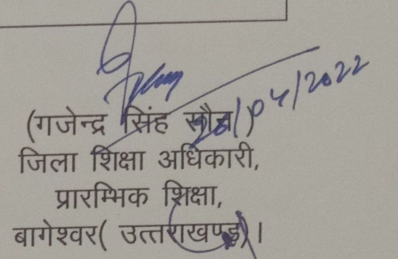 28/04/2022
(गजेन्द्र सिंह सौन)
जिला शिक्षा अधिकारी,
प्रारम्भिक शिक्षा,
बागेश्वर( उत्तराखण्ड)।